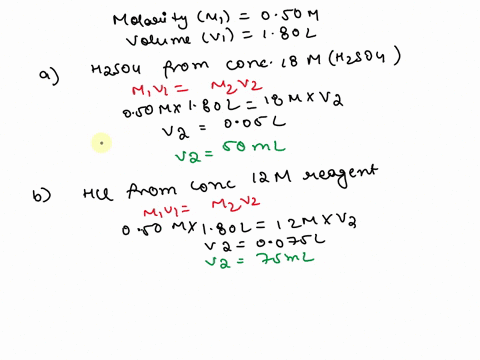 Molarity (M1) = 0.50M
Volume (V1) = 1.80L
a) H2SO4 from conc. 18 M (H2SO4)
M1V1 = M2V2
0.50 M X 1.80L = 18 M X V2
V2 = 0.05L
V2 = 50 mL
b) HCl from conc 12 M reagent
M1V1 = M2V2
0.50 M X 1.80L = 12M X V2
V2 = 0.075L
V2 = 75mL